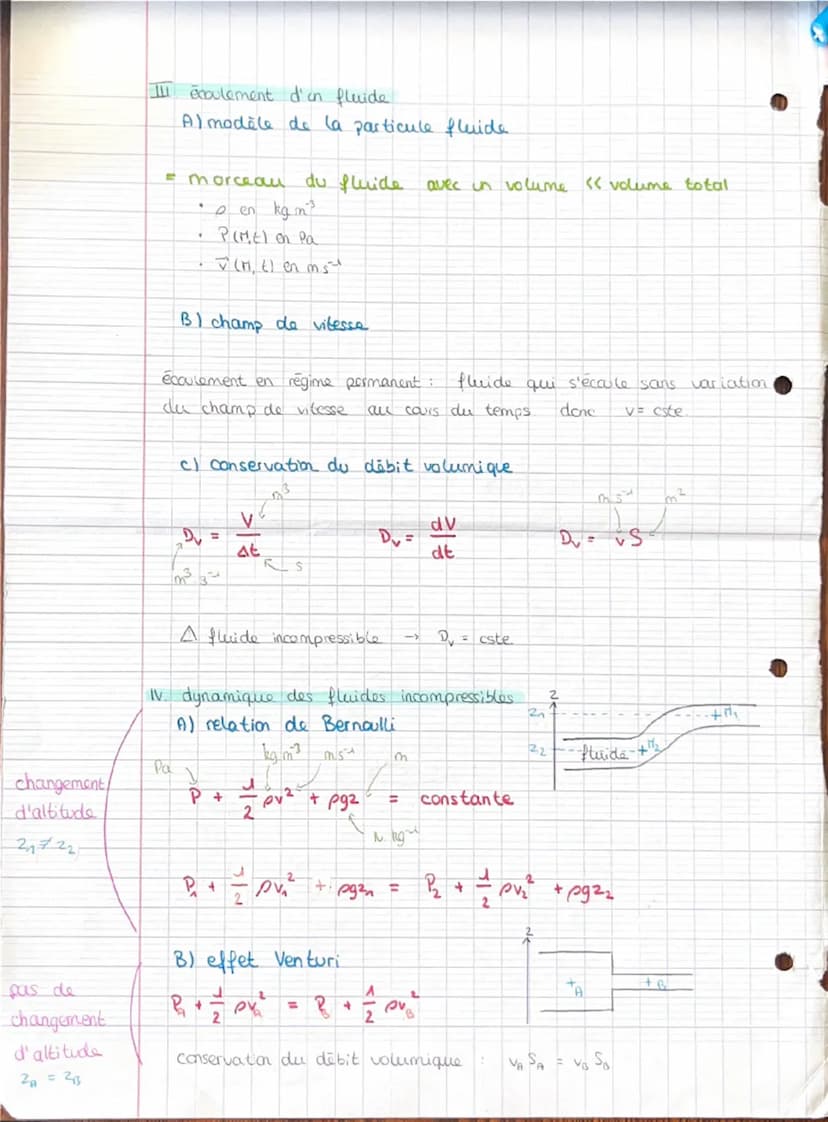 III écoulement d'un fluide
A) modèle de la particule fluide
= morceau du fluide avec un volume << volume total
• ρ en kg m⁻³
• P(M,t) en Pa
• v⃗(M, t) en m s⁻¹
B) champ de vitesse
écoulement en régime permanent : fluide qui s'écoule sans variation
du champ de vitesse au cours du temps donc v = cste.
C) conservation du débit volumique
m³ m s⁻¹ m²
Dᵥ = V/Δt Dᵥ = dV/dt Dᵥ = v S
m³ s⁻¹ s
△ fluide incompressible → Dᵥ = cste
IV. dynamique des fluides incompressibles
A) relation de Bernoulli
z
z₁ + M₁
z₂ fluide + M₂
Pa kg m⁻³ m s⁻¹ m
P + 1/2 ρv² + ρgz = constante
N. kg⁻¹
changement
d'altitude
z₁ ≠ z₂
P₁ + 1/2 ρv₁² + ρgz₁ = P₂ + 1/2 ρv₂² + ρgz₂
B) effet Venturi
z
+A +B
pas de
changement
d'altitude
z_A = z_B
P_A + 1/2 ρv_A² = P_B + 1/2 ρv_B²
conservaton du débit volumique : v_A S_A = v_B S_B